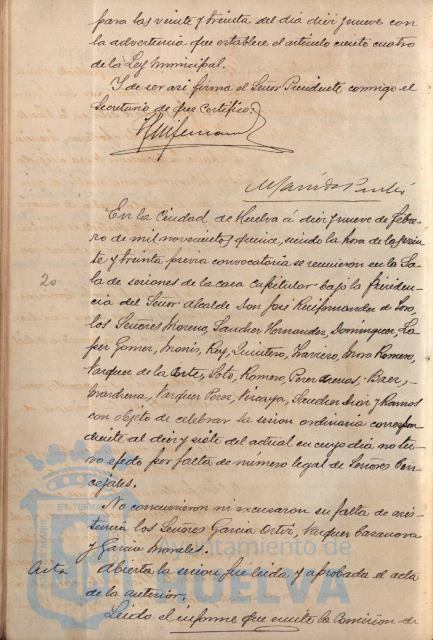 para las veinte y treinta del dia diez y nueve con
la advertencia que establece el articulo ciento cuatro
de la Ley Municipal.
Y de ser asi firma el Señor Presidente conmigo el
Secretario de que Certifico.
En la Ciudad de Huelva á diez y nueve de Febre-
ro de mil novecientos quince, siendo la hora de las vein-
te y treinta previa convocatoria se reunieron en la Sa-
la de sesiones de la casa Capitular bajo la Presiden-
cia del Señor Alcalde Don José Ruifernandez de Toro,
los Señores Moreno, Sanchez Hernandez, Dominguez, Lo-
pez Gomez, Monis, Rey, Quintero, Traviero, Moro Romero,
Vazquez de la Corte, Soto, Romero, Perez Arenas, Baez,
Marchena, Vazquez Perez, Vizcaya, Sanchez Diaz y Ramos
20
con objeto de celebrar la sesion ordinaria correspon-
diente al diez y siete del actual en cuyo dia no tu-
vo efecto por falta de número legal de Señores Con-
cejales.
No concurrieron ni excusaron su falta de asis-
tencia los Señores Garcia Ortiz, Vazquez Casanova
y Garcia Morales.
Acta Abierta la sesion fué leida y aprobada el acta
de la anterior.
Leido el informe que emite la Comision de
Ayuntamiento de
HUELVA